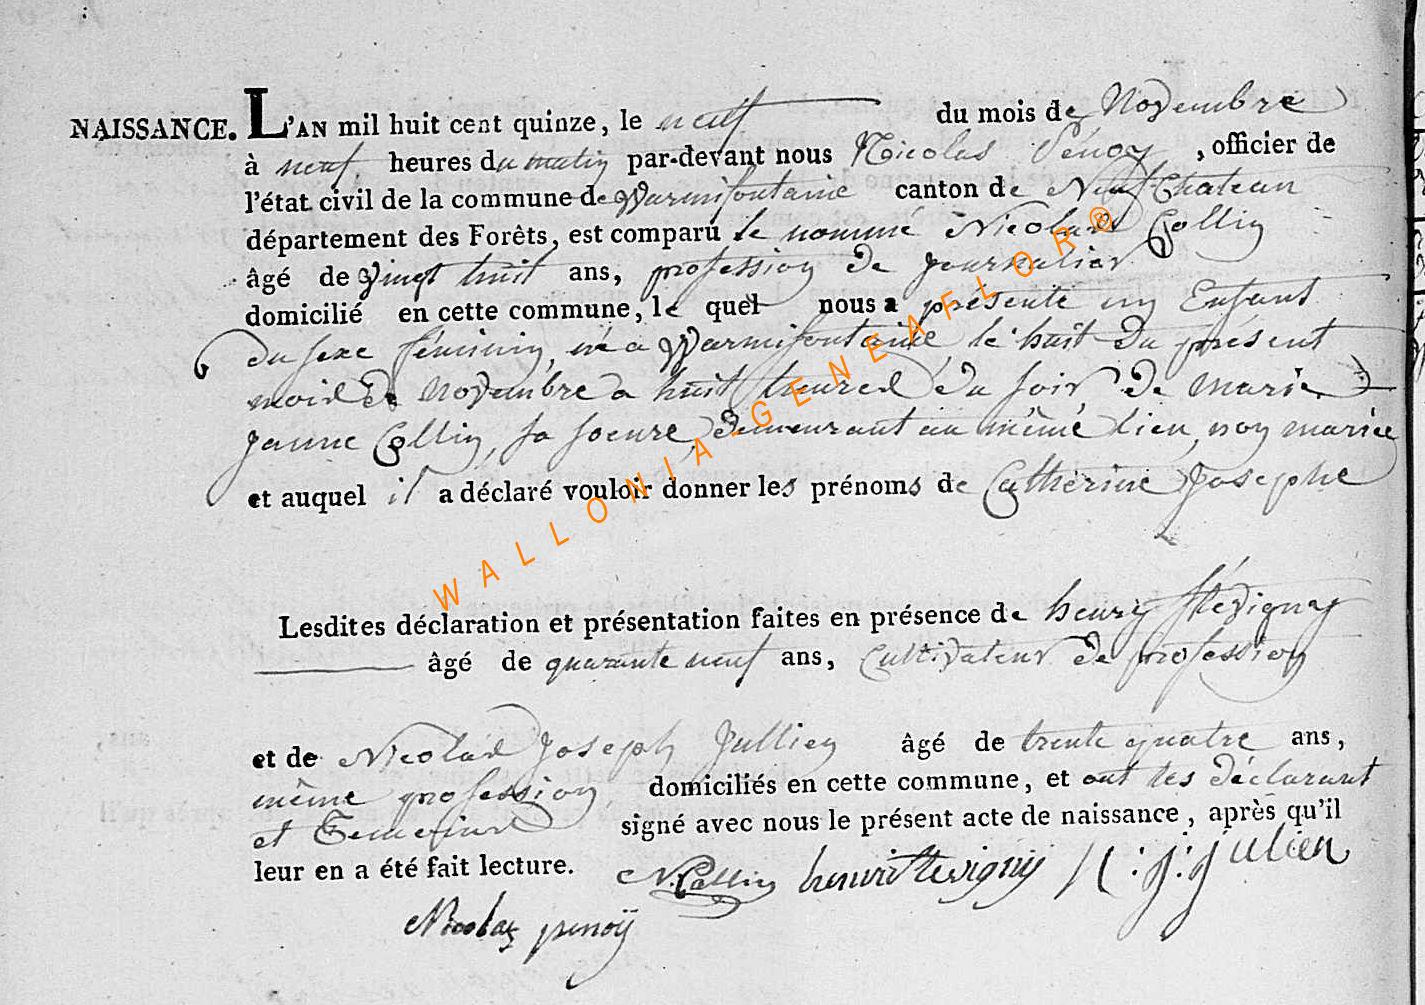 NAISSANCE. L'AN mil huit cent quinze, le neuf du mois de Novembre
à neuf heures du matin par-devant nous Nicolas Pénoy, officier de
l'état civil de la commune de Warmifontaine canton de Neufchateau
département des Forêts, est comparu le nommé Nicolas Collin
âgé de vingt huit ans, profession de journalier
domicilié en cette commune, le quel nous a présenté un Enfant
du sexe féminin, né a Warmifontaine le huit du présent
mois de Novembre a huit heures du soir, de marie
jeanne Collin, sa soeure, demeurant au même lieu, non mariée
et auquel il a déclaré vouloir donner les prénoms de Catherine Josephe
Lesdites déclaration et présentation faites en présence de henry stévigny
âgé de quarante neuf ans, Cultivateur de profession
et de Nicolas Joseph Jullien âgé de trente quatre ans,
même profession, domiciliés en cette commune, et ont les déclarant
et Temoins signé avec nous le présent acte de naissance, après qu'il
leur en a été fait lecture. N. Collin henri stevigny N : j : julien
Nicolas penoÿ
WALLONIA - GENEAFLOR®